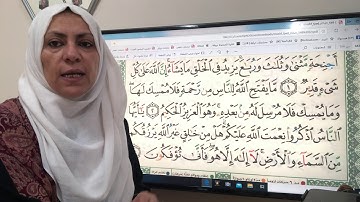 جْنِحَةٍ مَّثْنَىٰ وَثُلَاثَ وَرُبَاعَ يَزِيدُ فِي الْخَلْقِ مَا يَشَاءُ إِنَّ اللَّهَ عَلَىٰ كُلِّ
شَيْءٍ قَدِيرٌ ١ مَّا يَفْتَحِ اللَّهُ لِلنَّاسِ مِن رَّحْمَةٍ فَلَا مُمْسِكَ لَهَا
وَمَا يُمْسِكْ فَلَا مُرْسِلَ لَهُ مِن بَعْدِهِ وَهُوَ الْعَزِيزُ الْحَكِيمُ ٢ يَا أَيُّهَا
النَّاسُ اذْكُرُوا نِعْمَتَ اللَّهِ عَلَيْكُمْ هَلْ مِنْ خَالِقٍ غَيْرُ اللَّهِ يَرْزُقُكُم
مِّنَ السَّمَاءِ وَالْأَرْضِ لَا إِلَٰهَ إِلَّا هُوَ فَأَنَّىٰ تُؤْفَكُونَ